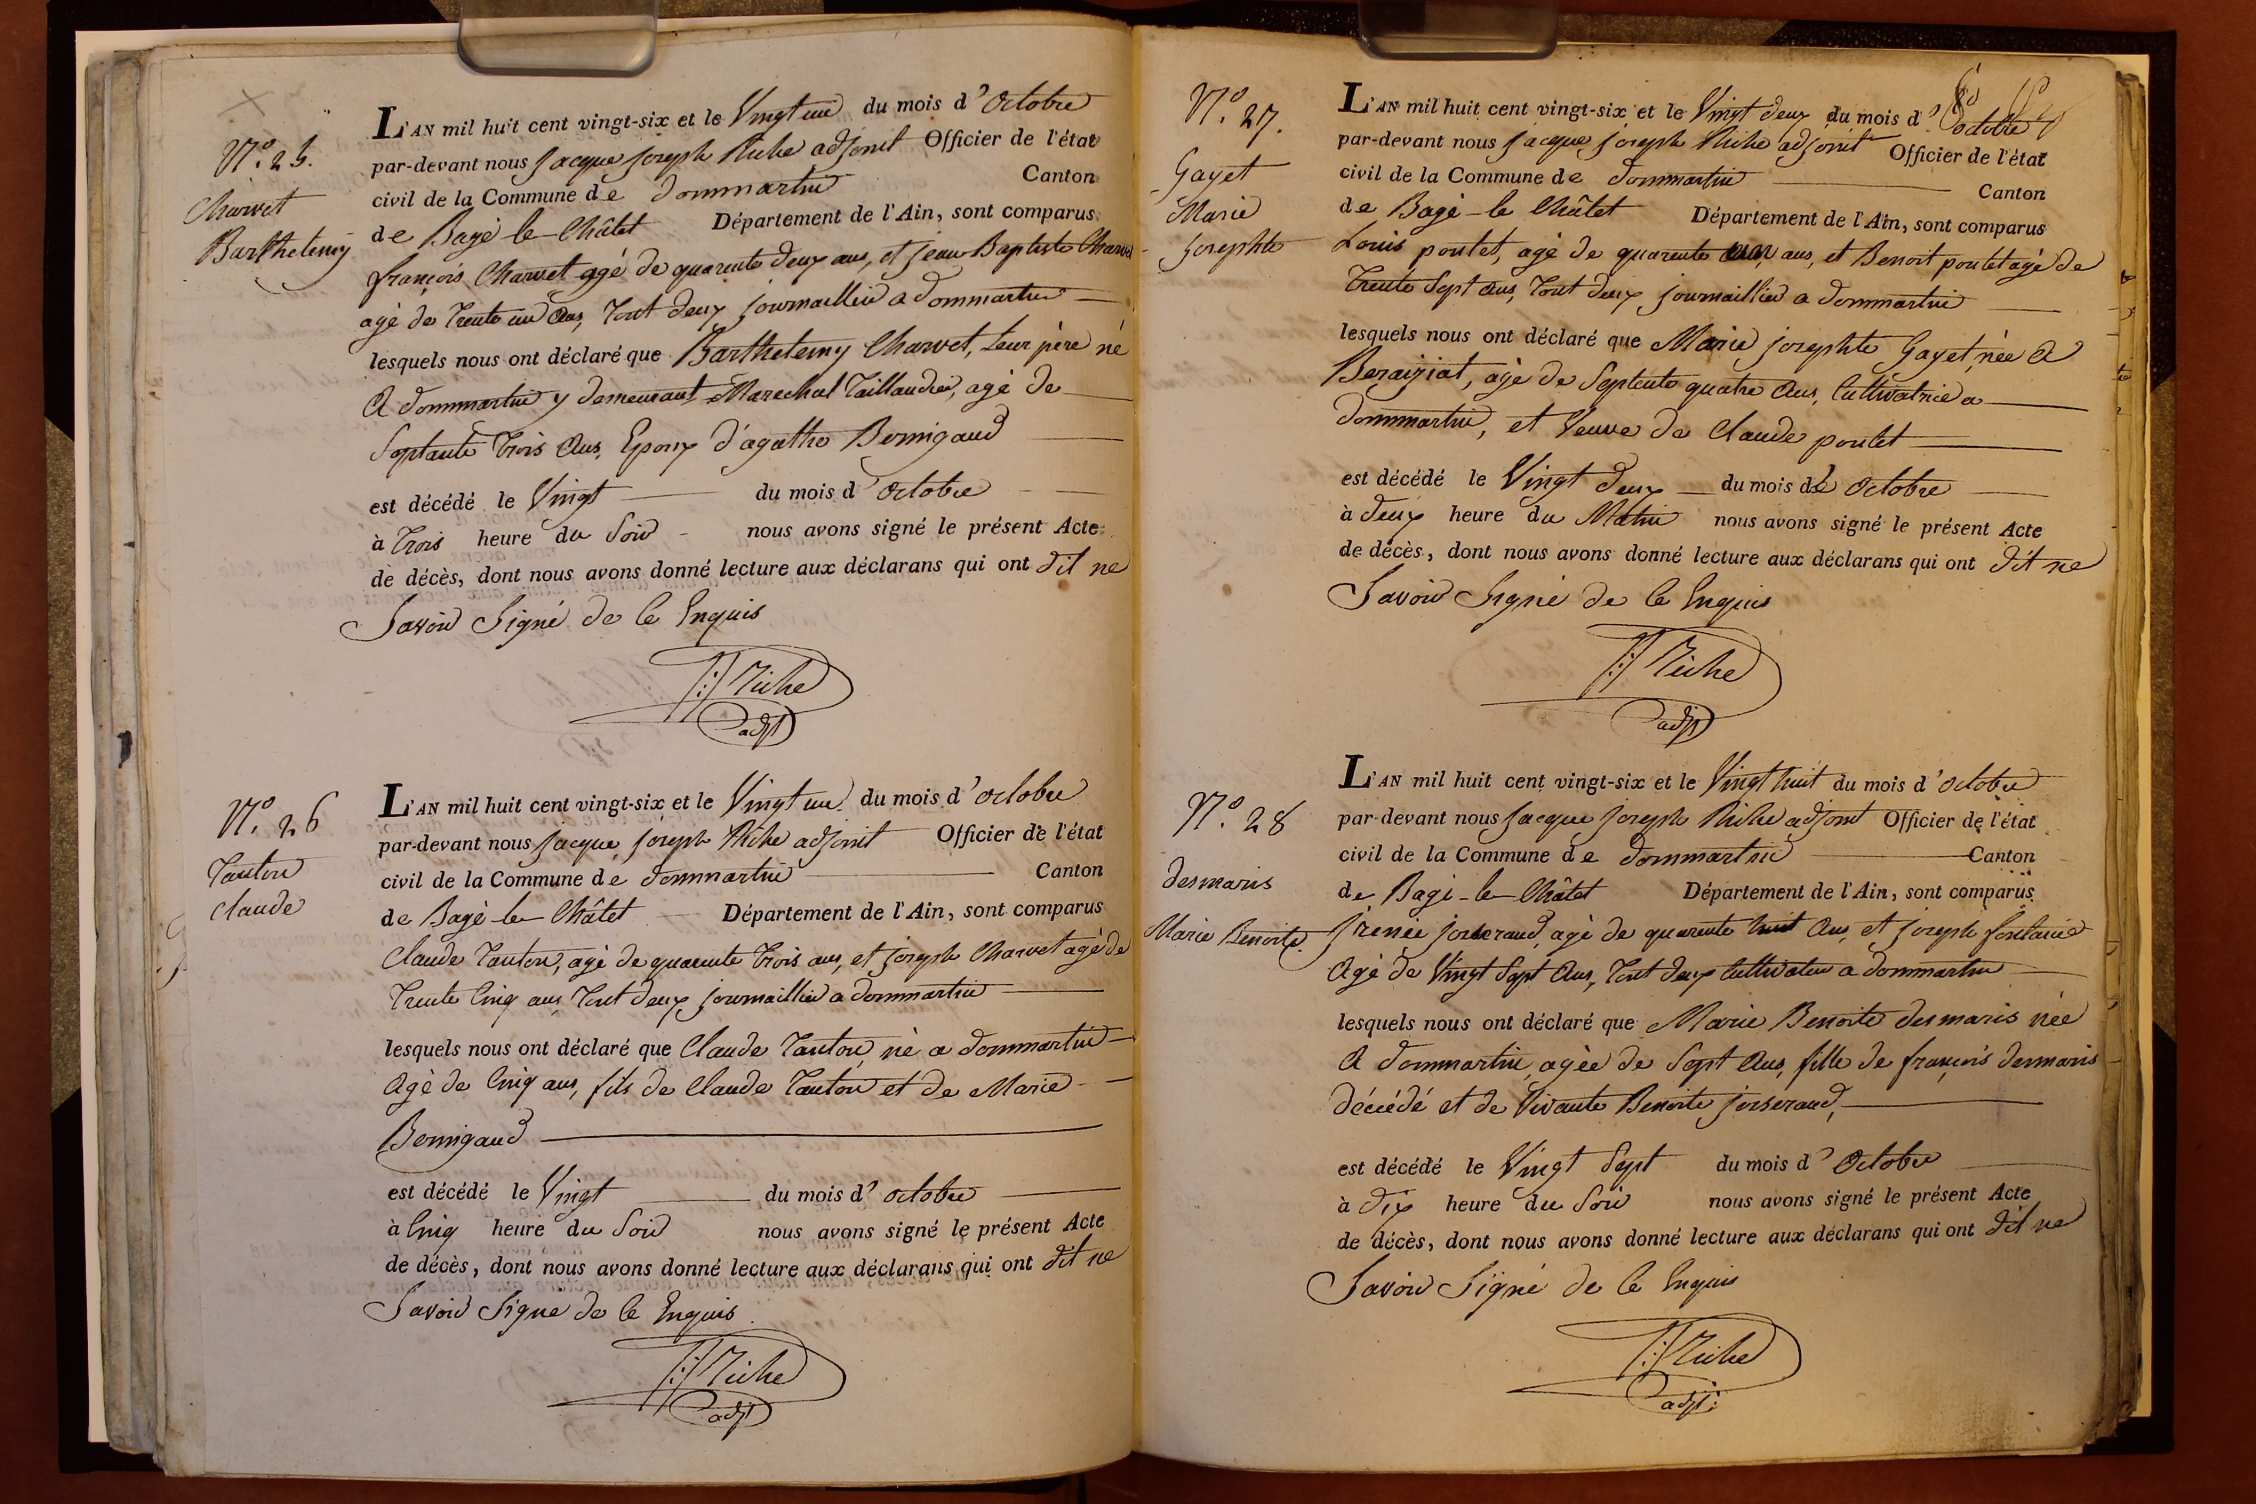 N.º 25.
Charvet
Barthelemy
L'AN mil huit cent vingt-six et le Vingt un du mois d' octobre
par-devant nous Jacque joseph Riche adjoint Officier de l'état
civil de la Commune de dommartin Canton
de Bagé le Châtel Département de l'Ain, sont comparus
françois Charvet agé de quarente deux ans, et jean Baptiste Charvet
agé de Trente un ans, Tout deux journaillier a dommartin
lesquels nous ont déclaré que Barthelemy Charvet, Leur père né
a dommartin y demeurant Marechal Taillandier, agé de
Septante Trois ans, Epoux d'agathe Bernigaud
est décédé le Vingt du mois d' octobre
à Trois heure du Soir nous avons signé le présent Acte
de décès, dont nous avons donné lecture aux déclarans qui ont dit ne
Savoir Signé de ce Enquis
Riche
adjt
N.º 26
Tanton
claude
L'AN mil huit cent vingt-six et le Vingt un du mois d' octobre
par-devant nous Jacque joseph Riche adjoint Officier de l'état
civil de la Commune de dommartin Canton
de Bagé le Châtel Département de l'Ain, sont comparus
Claude Tanton, agé de quarente Trois ans, et joseph Charvet agé de
Trente Cinq ans Tout deux journaillier a dommartin
lesquels nous ont déclaré que Claude Tanton né a dommartin
Agé de Cinq ans, fils de Claude Tanton et de Marie
Bernigaud
est décédé le Vingt du mois d' octobre
à Cinq heure du Soir nous avons signé le présent Acte
de décès, dont nous avons donné lecture aux déclarans qui ont dit ne
Savoir Signé de ce Enquis
Riche
adjt
N.º 27.
Gayet
Marie
josephte
L'AN mil huit cent vingt-six et le Vingt deux du mois d' octobre
par-devant nous Jacque joseph Riche adjoint Officier de l'état
civil de la Commune de dommartin Canton
de Bagé-le Châtel Département de l'Ain, sont comparus
Louis poutet, agé de quarente un ans, et Benoit poutet agé de
Trente Sept ans, Tout deux journaillier a dommartin
lesquels nous ont déclaré que Marie josephte Gayet, née a
Beraiziat, agé de Septente quatre ans, Cultivatrice a
dommartin, et Veuve de Claude poutet
est décédé le Vingt deux du mois de octobre
à deux heure du Matin nous avons signé le présent Acte
de décès, dont nous avons donné lecture aux déclarans qui ont dit ne
Savoir Signé de ce Enquis
Riche
adjt
N.º 28
desmaris
Marie Benoite
L'AN mil huit cent vingt-six et le Vingt huit du mois d' octobre
par-devant nous Jacque joseph Riche adjoint Officier de l'état
civil de la Commune de dommartin Canton
de Bagé-le Châtel Département de l'Ain, sont comparus
jrenée josserand, agé de quarente huit ans, et joseph fontaine
Agé de Vingt Sept ans, Tout deux Cultivateur a dommartin
lesquels nous ont déclaré que Marie Benoite desmaris née
a dommartin, agée de Sept ans, fille de françois desmaris
décédé et de Vivante Benoite josserand,
est décédé le Vingt Sept du mois d' octobre
à dix heure du Soir nous avons signé le présent Acte
de décès, dont nous avons donné lecture aux déclarans qui ont dit ne
Savoir Signé de ce Enquis
Riche
adjt